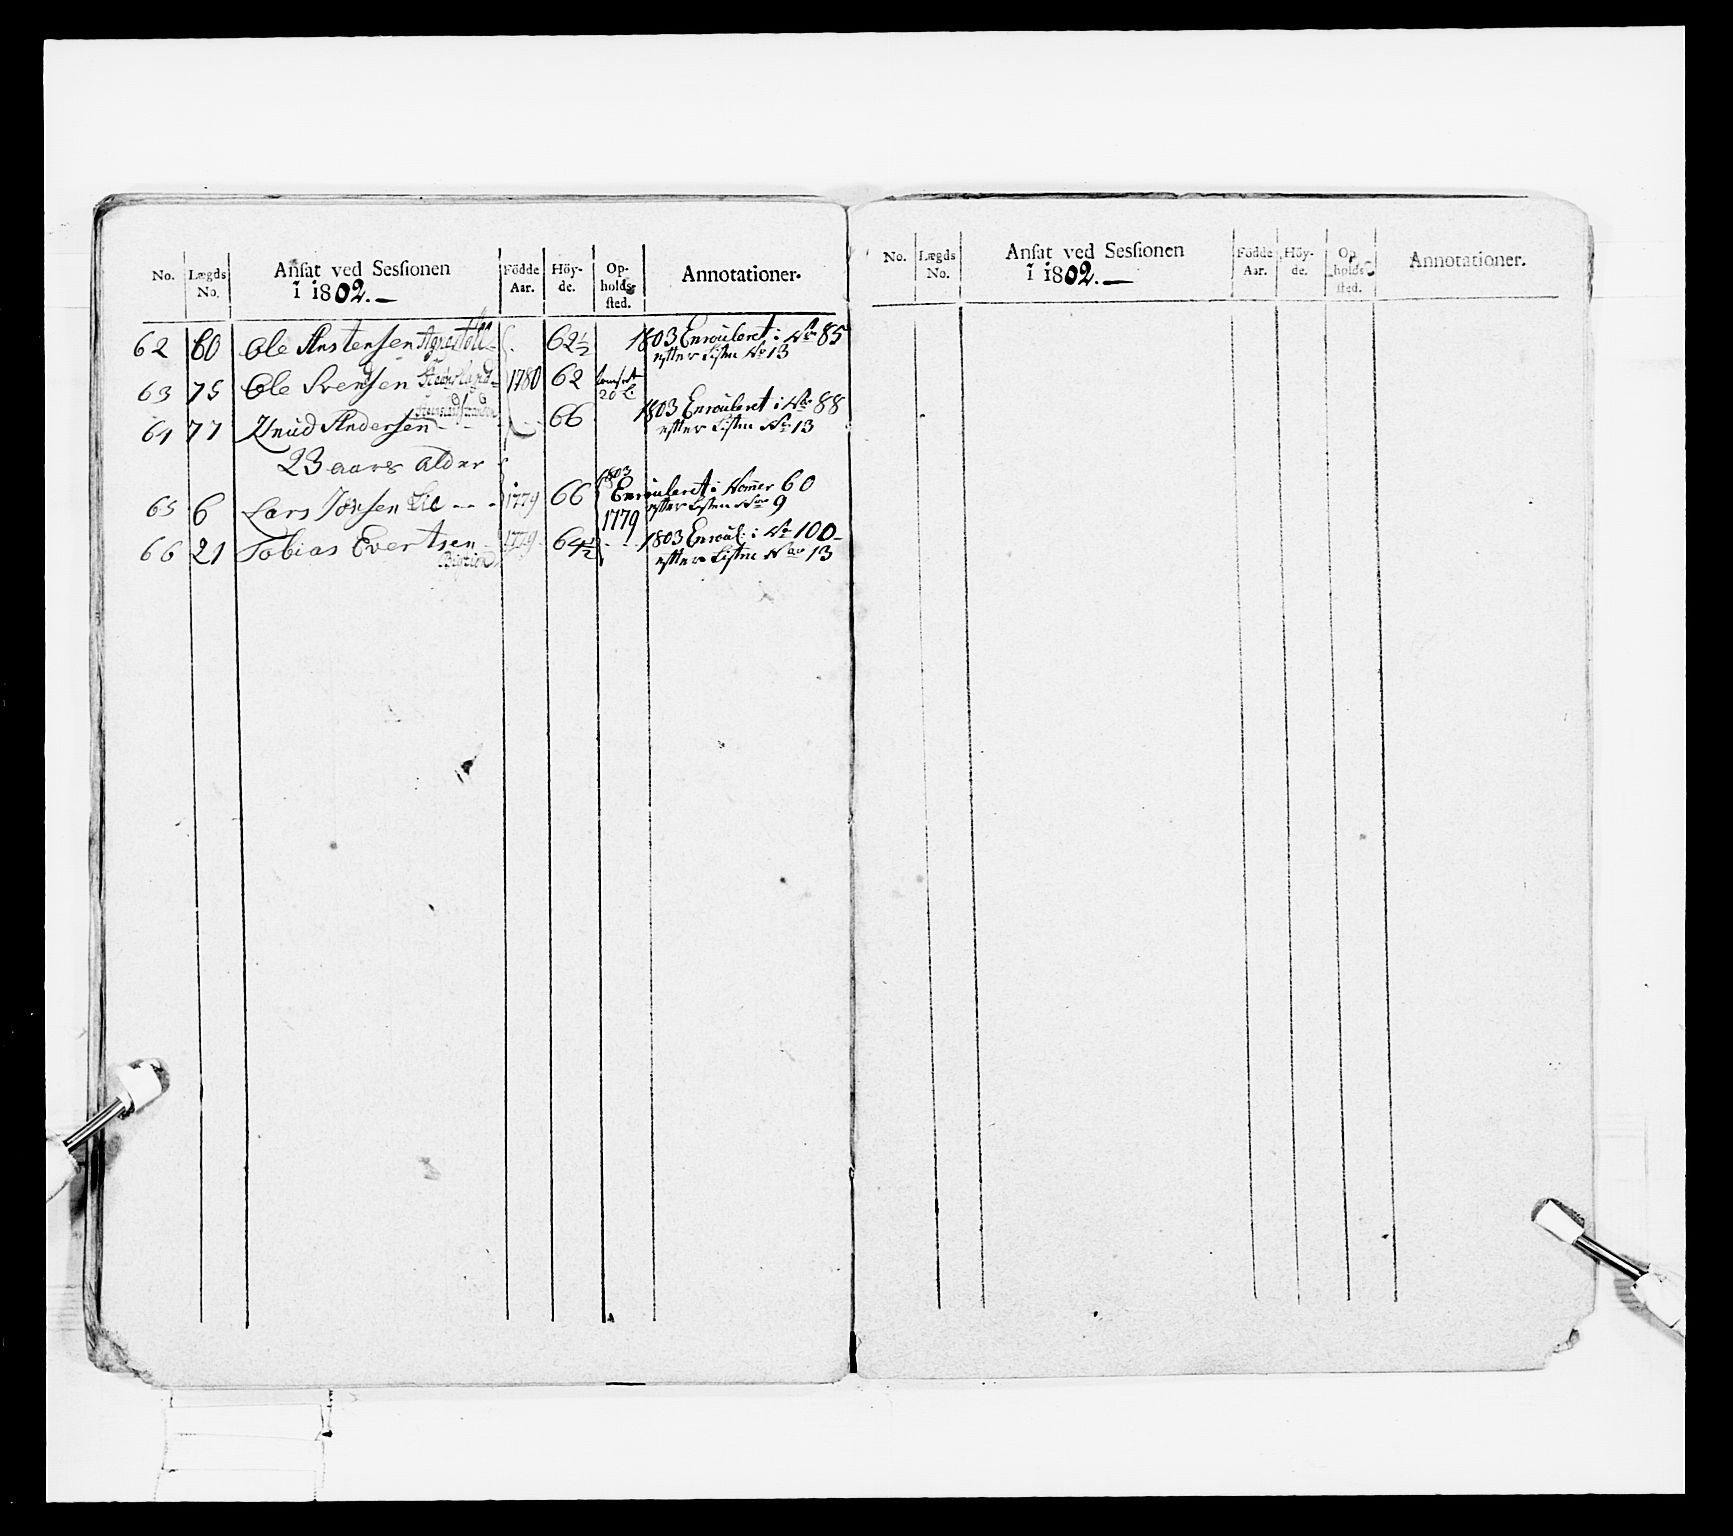 No. Lægds No. Ansat ved Sessionen i 1802. Födde Aar. Höyde. Opholdssted. Annotationer.
62 60 Ole Anstensen 62½ 1803 Enrouleret i No 85
efter Listen No 13
63 75 Ole Svensen 1780 62
64 77 Knud Andersen 66 1803 Enrouleret i No 88
efter Listen No 13
23 aars alder
65 6 Lars Jonsen Lie 1779 66 1803 Enrouleret i Nomer 60
efter Listen No 9
1779
66 21 Tobias Evertsen 1779 64½ 1803 Enroul: i No 100
efter Listen No 13
No. Lægds No. Ansat ved Sessionen i 1802. Födde Aar. Höyde. Opholdssted. Annotationer.